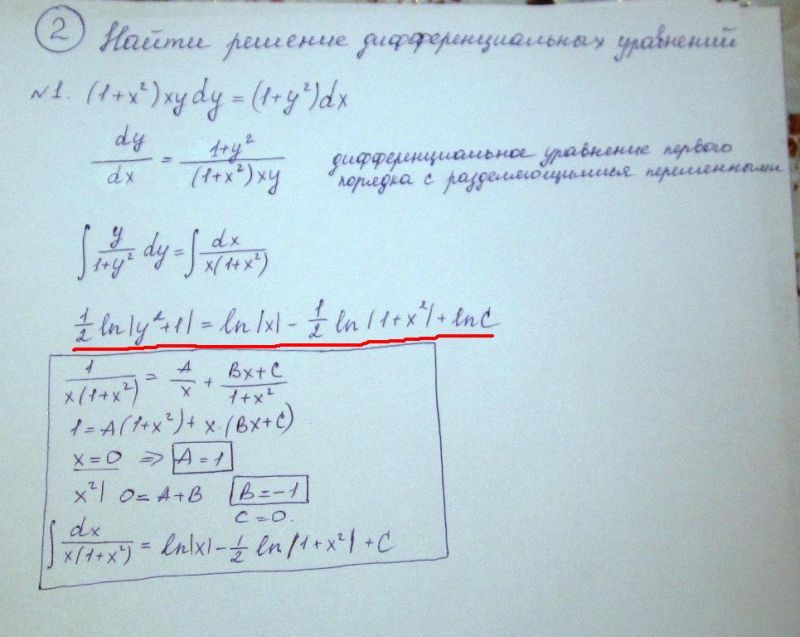 ② Найти решение дифференциальных уравнений
№1. (1+x²)xy dy = (1+y²)dx
dy/dx = (1+y²)/((1+x²)xy) дифференциальное уравнение первого
порядка с разделяющимися переменными
∫ y/(1+y²) dy = ∫ dx/(x(1+x²))
1/2 ln|y²+1| = ln|x| - 1/2 ln|1+x²| + lnC
1/(x(1+x²)) = A/x + (Bx+C)/(1+x²)
1 = A(1+x²) + x·(Bx+C)
x=0 ⇒ A=1
x²| 0=A+B B=-1
C=0.
∫ dx/(x(1+x²)) = ln|x| - 1/2 ln|1+x²| + C